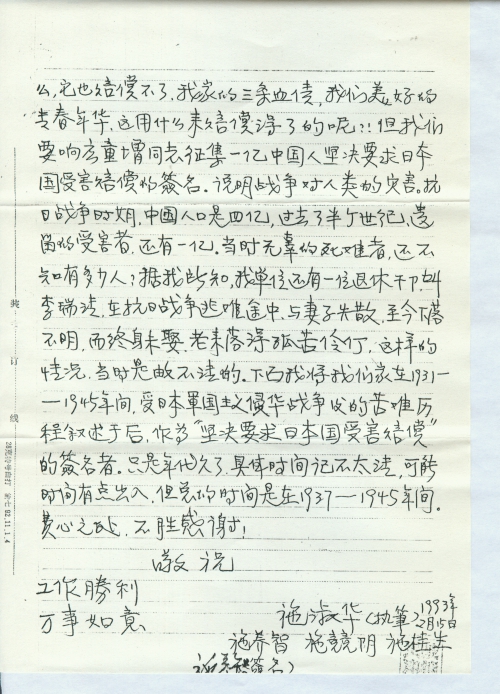 么,它也赔偿不了,我家的三条血债,我们美好的
青春年华,这用什么来赔偿得了的呢?!但我们
要响应童增同志征集一亿中国人坚决要求日本
国受害赔偿的签名。说明战争对人类的灾害。抗
日战争时期,中国人口是四亿,过去了半个世纪,遗
留的受害者,还有一亿。当时无辜的死难者,还不
知有多少人?据我所知,我单位还有一位退休干部叫
李瑞法,在抗日战争逃难途中,与妻子失散,至今下落
不明,而终身未娶,老来落得孤苦伶仃,这样的
情况,当时是数不清的。下面我将我们家在1931—
—1945年间,受日本軍国主义侵华战争中的苦难历
程叙述于后,作為"坚决要求日本国受害赔偿"
的签名者。只是年代久了,具体时间记不太清,可能
时间有点出入,但总的时间是在1937—1945年间。
费心之处,不胜感谢!
敬祝
工作勝利
万事如意
施淑华(执筆)1993年2月15日
施养智 施競明 施桂生
签名)
装
订
线